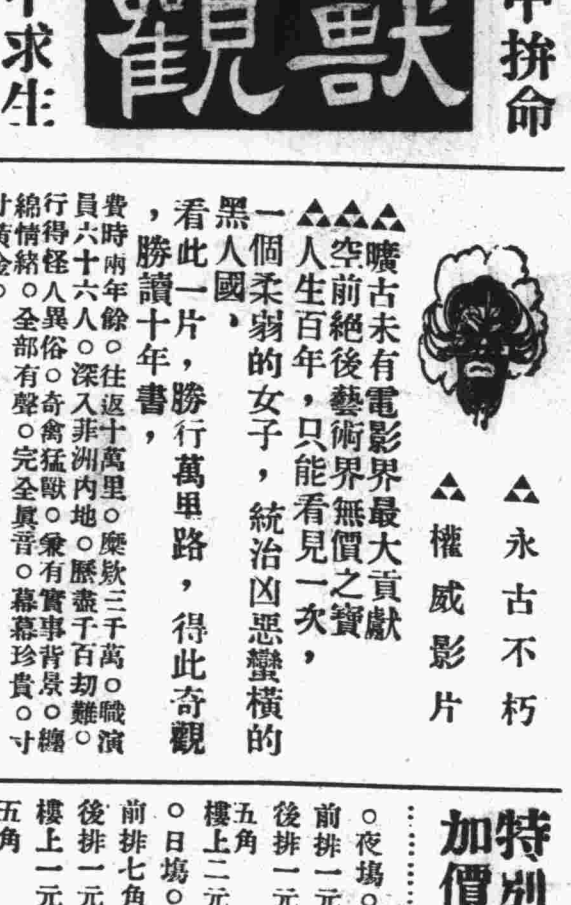 拚命
獸觀
求生
永古不朽
權威影片
曠古未有電影界最大貢獻
空前絕後藝術界無價之寶
人生百年，只能看見一次，
一個柔弱的女子，統治凶惡蠻橫的
黑人國，
看此一片，勝行萬里路，得此奇觀
，勝讀十年書，
費時兩年餘。往返十萬里。糜欵三千萬。職演
員六十六人。深入非洲內地。歷盡千百刼難。
行得怪人異俗。奇禽猛獸。兼有實事背景。纏
綿情緒。全部有聲。完全眞音。幕幕珍貴。寸
寸黃金。
特別
加價
。夜塲。
前排一元
後排一元
五角
樓上二元
。日塲。
前排七角
後排一元
樓上一元
五角